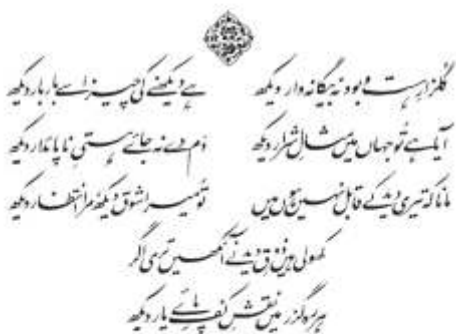 گلزارِ ہست و بود نہ بیگانہ وار دیکھ ہے دیکھنے کی چیز اسے بار بار دیکھ
آیا ہے تُو جہاں میں مثالِ شرار دیکھ دَم دے نہ جائے ہستیِ ناپائدار دیکھ
مانا کہ تیری دید کے قابل نہیں ہوں میں تُو میرا شوق دیکھ مرا انتظار دیکھ
کھولی ہیں ذوقِ دید نے آنکھیں تری اگر
ہر رہ گزر میں نقشِ کفِ پائے یار دیکھ